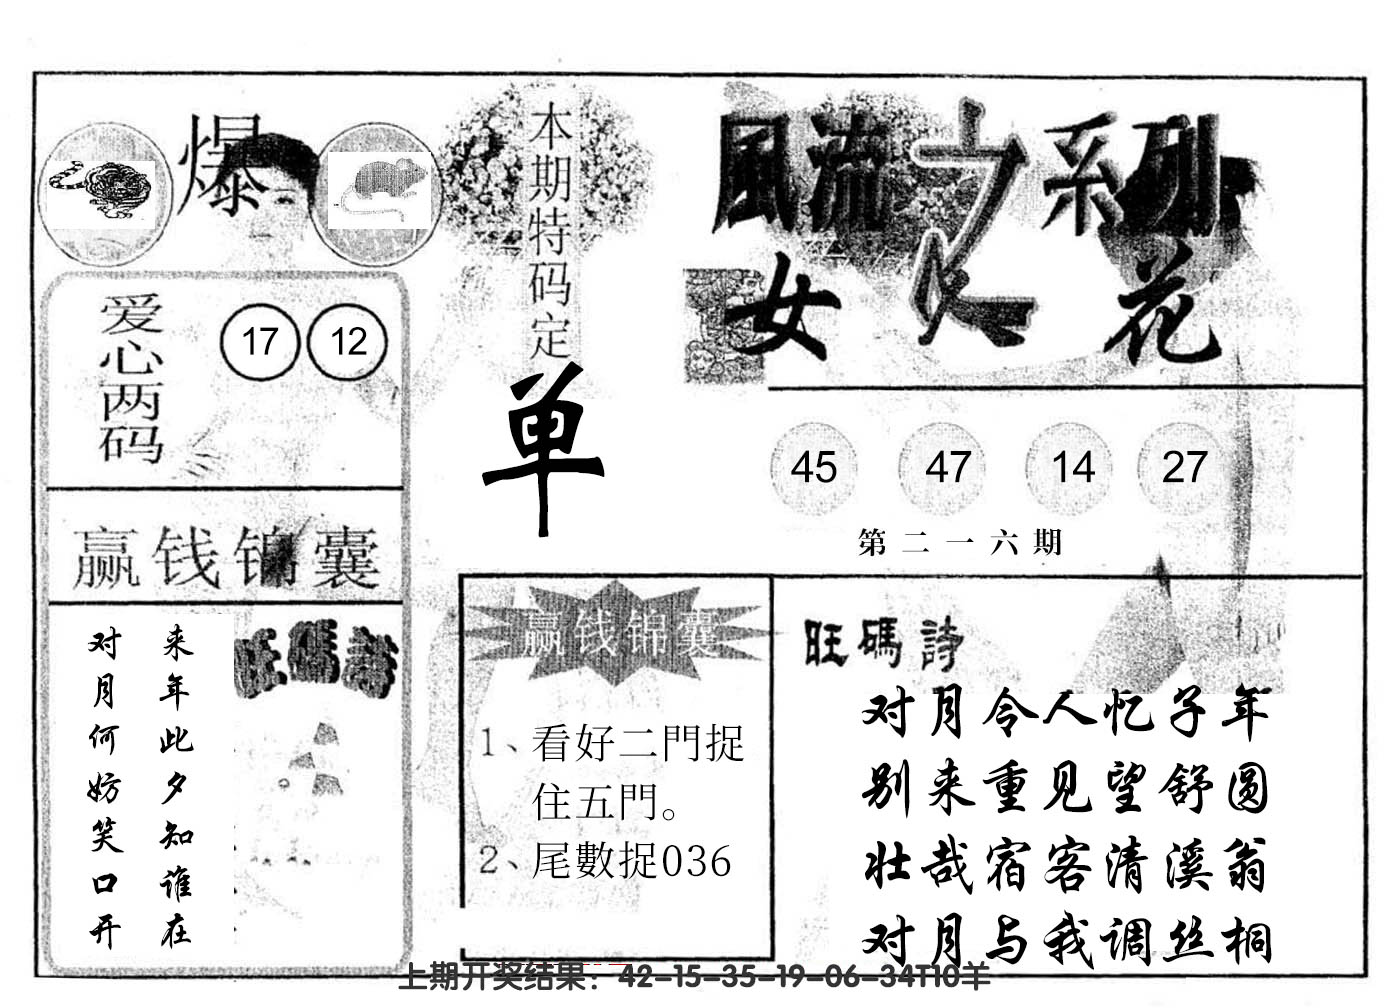 爆
本期特码定
单
風流之系列
女人花
爱心两码
17 12
45 47 14 27
第二一六期
赢钱锦囊
对月何妨笑口开
来年此夕知谁在
旺碼詩
赢钱锦囊
1、看好二門捉
住五門。
2、尾數捉036
旺碼詩
对月令人忆子年
别来重见望舒圆
壮哉宿客清溪翁
对月与我调丝桐
上期开奖结果：42-15-35-19-06-34T10羊